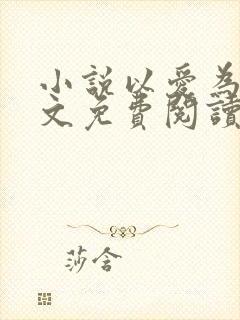 小說以愛為
文免費閱讀
莎含